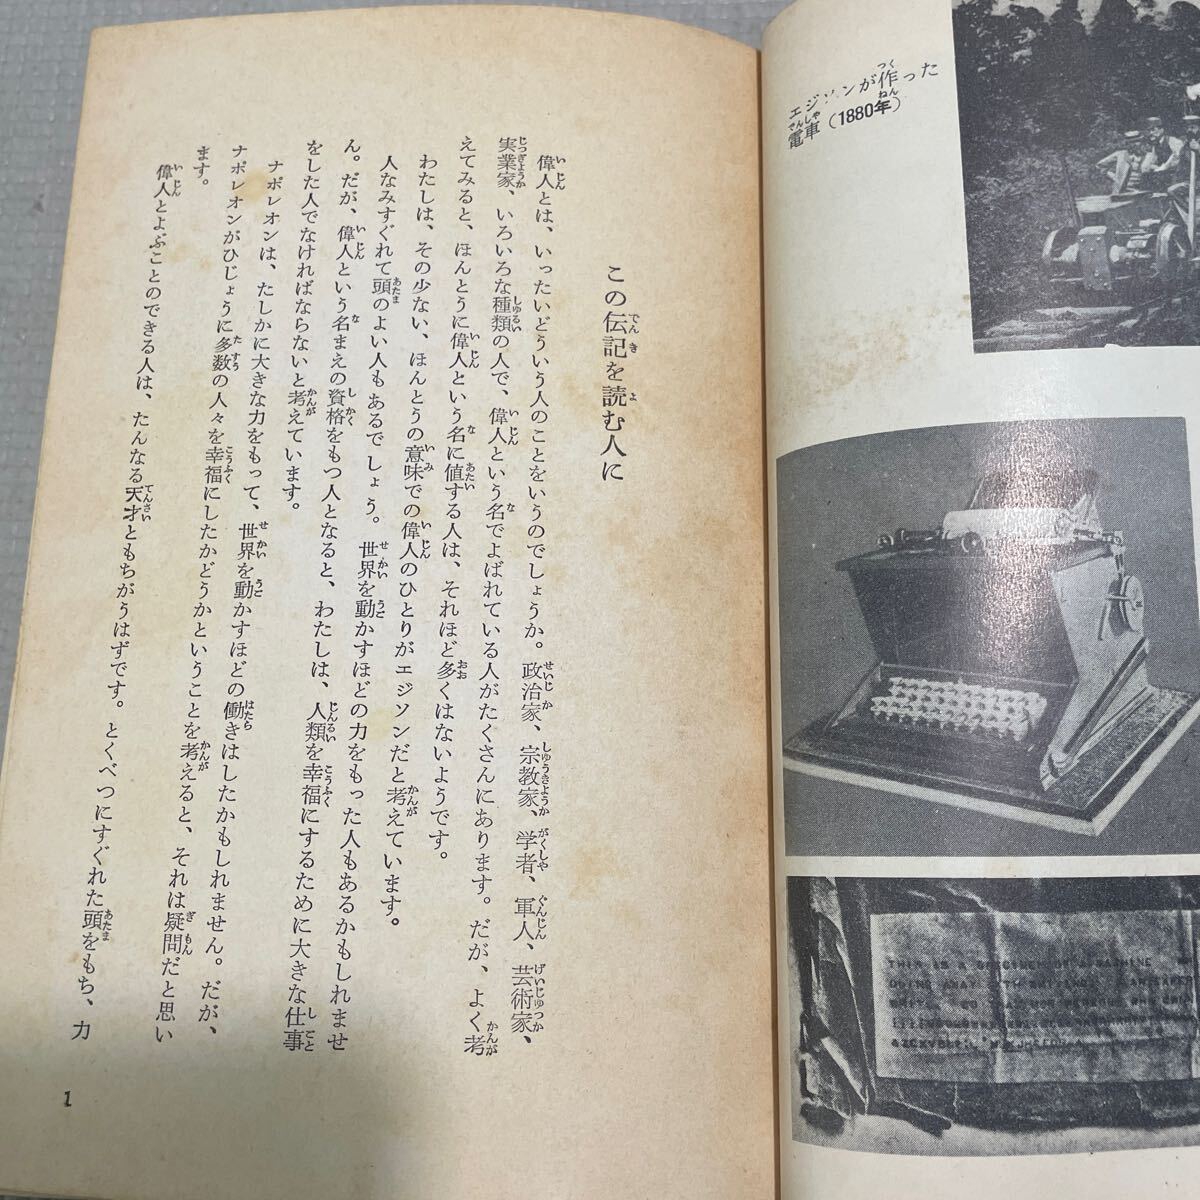 エジソンが作った
電車（1880年）
この伝記を読む人に
偉人とは、いったいどういう人のことをいうのでしょうか。政治家、宗教家、学者、軍人、芸術家、
実業家、いろいろな種類の人で、偉人という名でよばれている人がたくさんにあります。だが、よく考
えてみると、ほんとうに偉人という名に値する人は、それほど多くはないようです。
わたしは、その少ない、ほんとうの意味での偉人のひとりがエジソンだと考えています。
人なみすぐれて頭のよい人もあるでしょう。世界を動かすほどの力をもった人もあるかもしれませ
ん。だが、偉人という名まえの資格をもつ人となると、わたしは、人類を幸福にするために大きな仕事
をした人でなければならないと考えています。
ナポレオンは、たしかに大きな力をもって、世界を動かすほどの働きはしたかもしれません。だが、
ナポレオンがひじょうに多数の人々を幸福にしたかどうかということを考えると、それは疑問だと思い
ます。
偉人とよぶことのできる人は、たんなる天才ともちがうはずです。とくべつにすぐれた頭をもち、力
1
THIS IS A